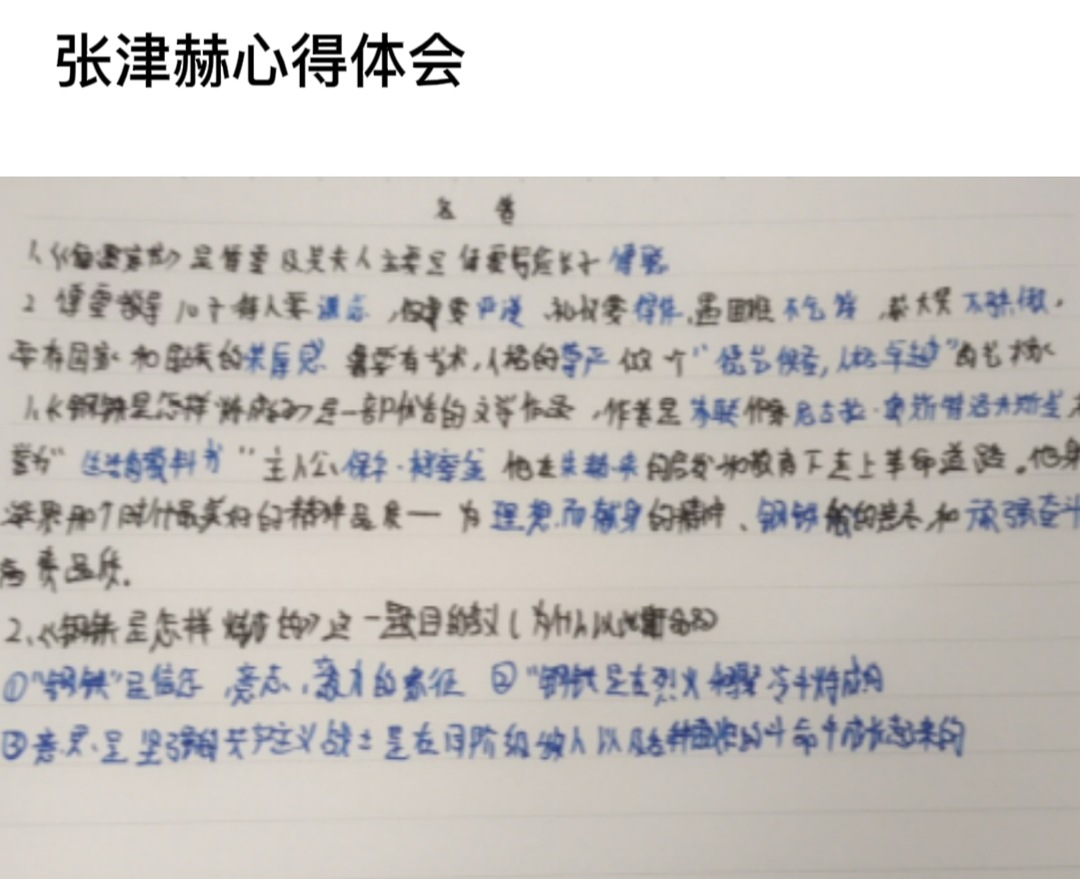 张津赫心得体会
名 著
1、《傅雷家书》是傅雷及其夫人主要是
2 傅雷教导 儿子待人要谦虚,做事要严谨 礼仪要得体,遇困难不气馁,获大奖不骄傲,
要有国家和民族的荣辱感 要有艺术,人格的尊严 做 个“德艺俱备,人格卓越”的艺术
1、《钢铁是怎样炼成的》是一部优秀的文学作品,作者是 苏联作家尼古拉·奥斯特洛夫斯基
誉为“生活教科书”主人公保尔·柯察金 他在朱赫来的启发和教育下走上革命道路。他身
那个时代最美好的精神品质一 为理想而献身的精神、钢铁般的意志和顽强奋斗
高贵品质。
2、《钢铁是怎样炼成的》这一题目的(为什么以此
①“钢铁”是信念,意志,毅力的象征 ②“钢铁是在烈火 炼成的
③意思是坚强的共产主义战士是在同阶级敌人以及各种困难的斗 中成长起来的